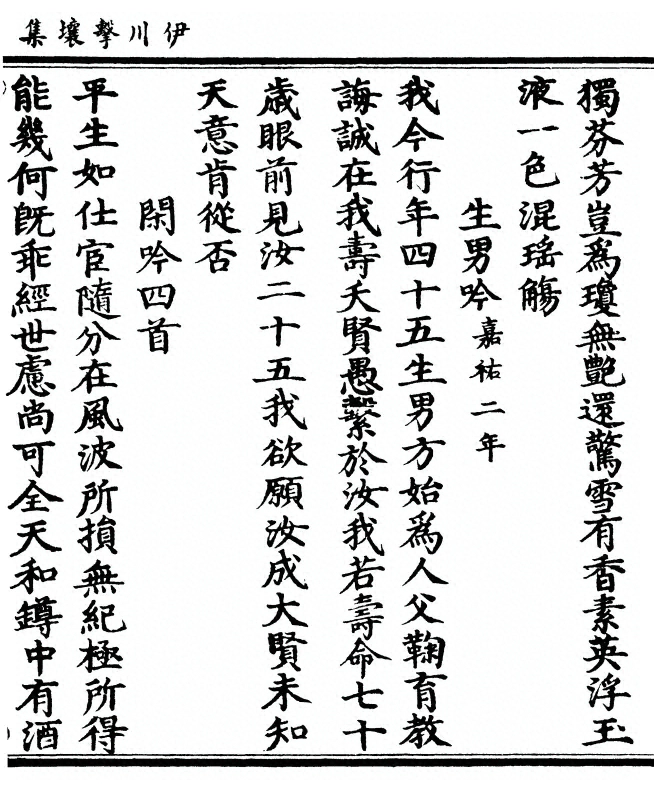 伊川擊壤集
獨芬芳豈爲瓊無艷還驚雪有香素英浮玉
液一色混瑤觴
生男吟嘉祐二年
我今行年四十五生男方始爲人父鞠育教
誨誠在我壽夭賢愚繫於汝我若壽命七十
歲眼前見汝二十五我欲願汝成大賢未知
天意肯從否
閑吟四首
平生如仕宦隨分在風波所損無紀極所得
能幾何旣乖經世慮尚可全天和罇中有酒